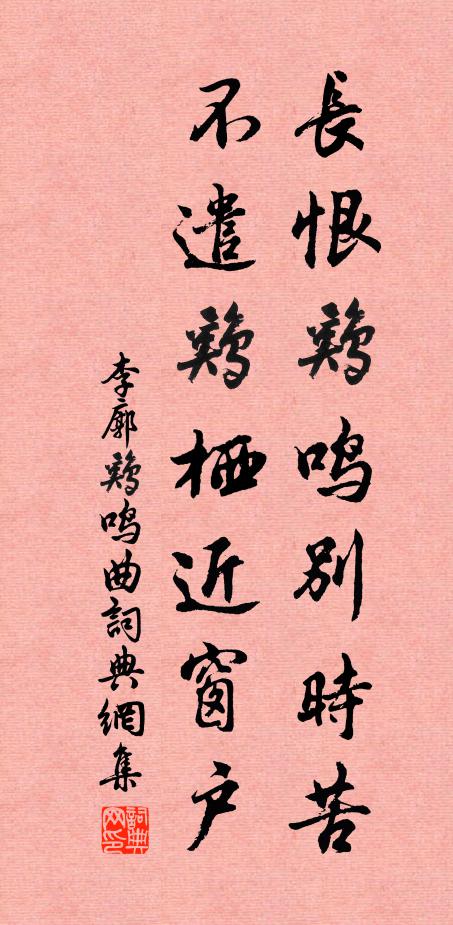 長恨鷄鳴別時苦
不遣鷄栖近窗户
李廓鷄鳴曲詞典網集
詞典网印